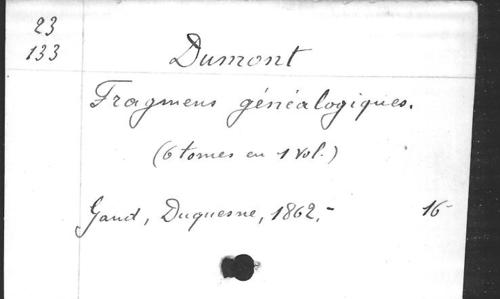 23
133
Dumont
Fragmens généalogiques.
(6 tomes en 1 vol.)
Gand, Duquesne, 1862.- 16-